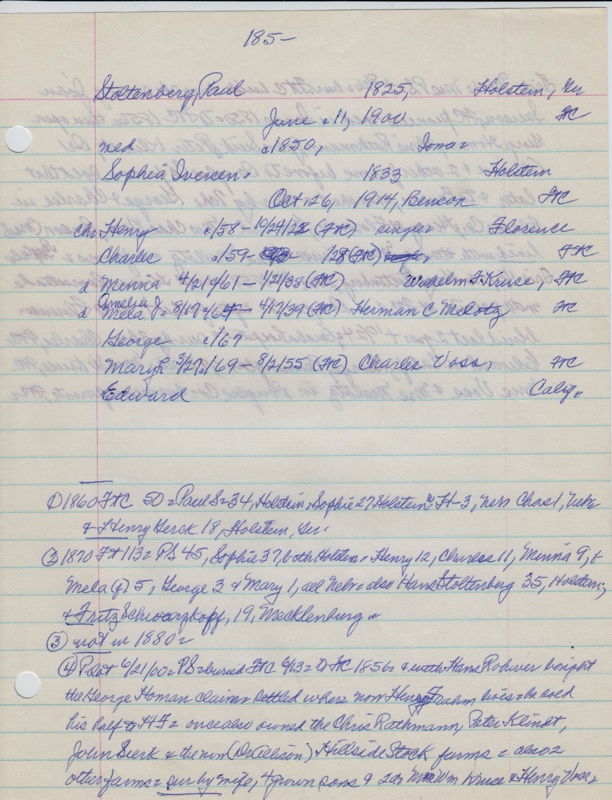 185-
Stoltenberg, Paul 1825, Holstein, Ger
June 11, 1900 FC
med c1850, Iowa=
Sophia Iversen= 1833 Holstein
Oct. 26, 1914, Benson FC
Ch: Henry c/58 - 10/24/22 (FC) single= Florence
Charles c/59- /28 (FC) FC
d Minna 4/21/61- 1/21/38 (FC) Wilhelm F Kruse, FC
Amelia J.
d Mela= 8/17/64- 4/17/39 (FC) Herman C McLotz FC
George c/67
Mary L 3/27/69- 8/2/55 (FC) Charles Voss, FC
Edward Calif=
① 1860 FC 50= Paul S=34, Holstein=Sophie 27 Holstein H-3, Nebr Chas 1, Nebr
& Henry Gerck 18, Holstein, Ger.
② 1870 F #113= PS 45, Sophie 37, both Holstein= Henry 12, Charles 11, Minna 9, &
Mela (f) 5, George 3 & Mary 1, all Nebr= also Hans Stoltenberg 35, Holstein;
& Fritz Schwarzkoff, 19, Mecklenburg=
③ not in 1880=
④ P dst 6/21/60= PS= buried FC 6/13= to FC 1856= & with Hans Rohwer bought
the George Homan claim= settled where now Henry Frahm lives= he sold
his half to HF= once also owned the Chris Rathmann, Peter Klindt,
John Sierk & the now (Dr Allison) Hillside Stock farms= also 2
other farms= sur by wife, 4 grown sons & 2ds Mrs Wm Kruse & Henry Voss,